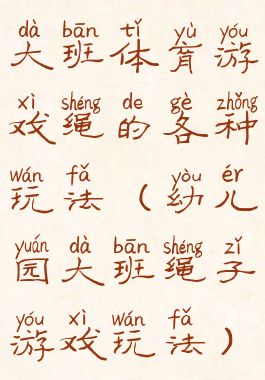 dà bān tǐ yù yóu
大班体育游
xì shéng de gè zhǒng
戏绳的各种
wán fǎ yòu ér
玩法（幼儿
yuán dà bān shéng zǐ
园大班绳子
yóu xì wán fǎ
游戏玩法）